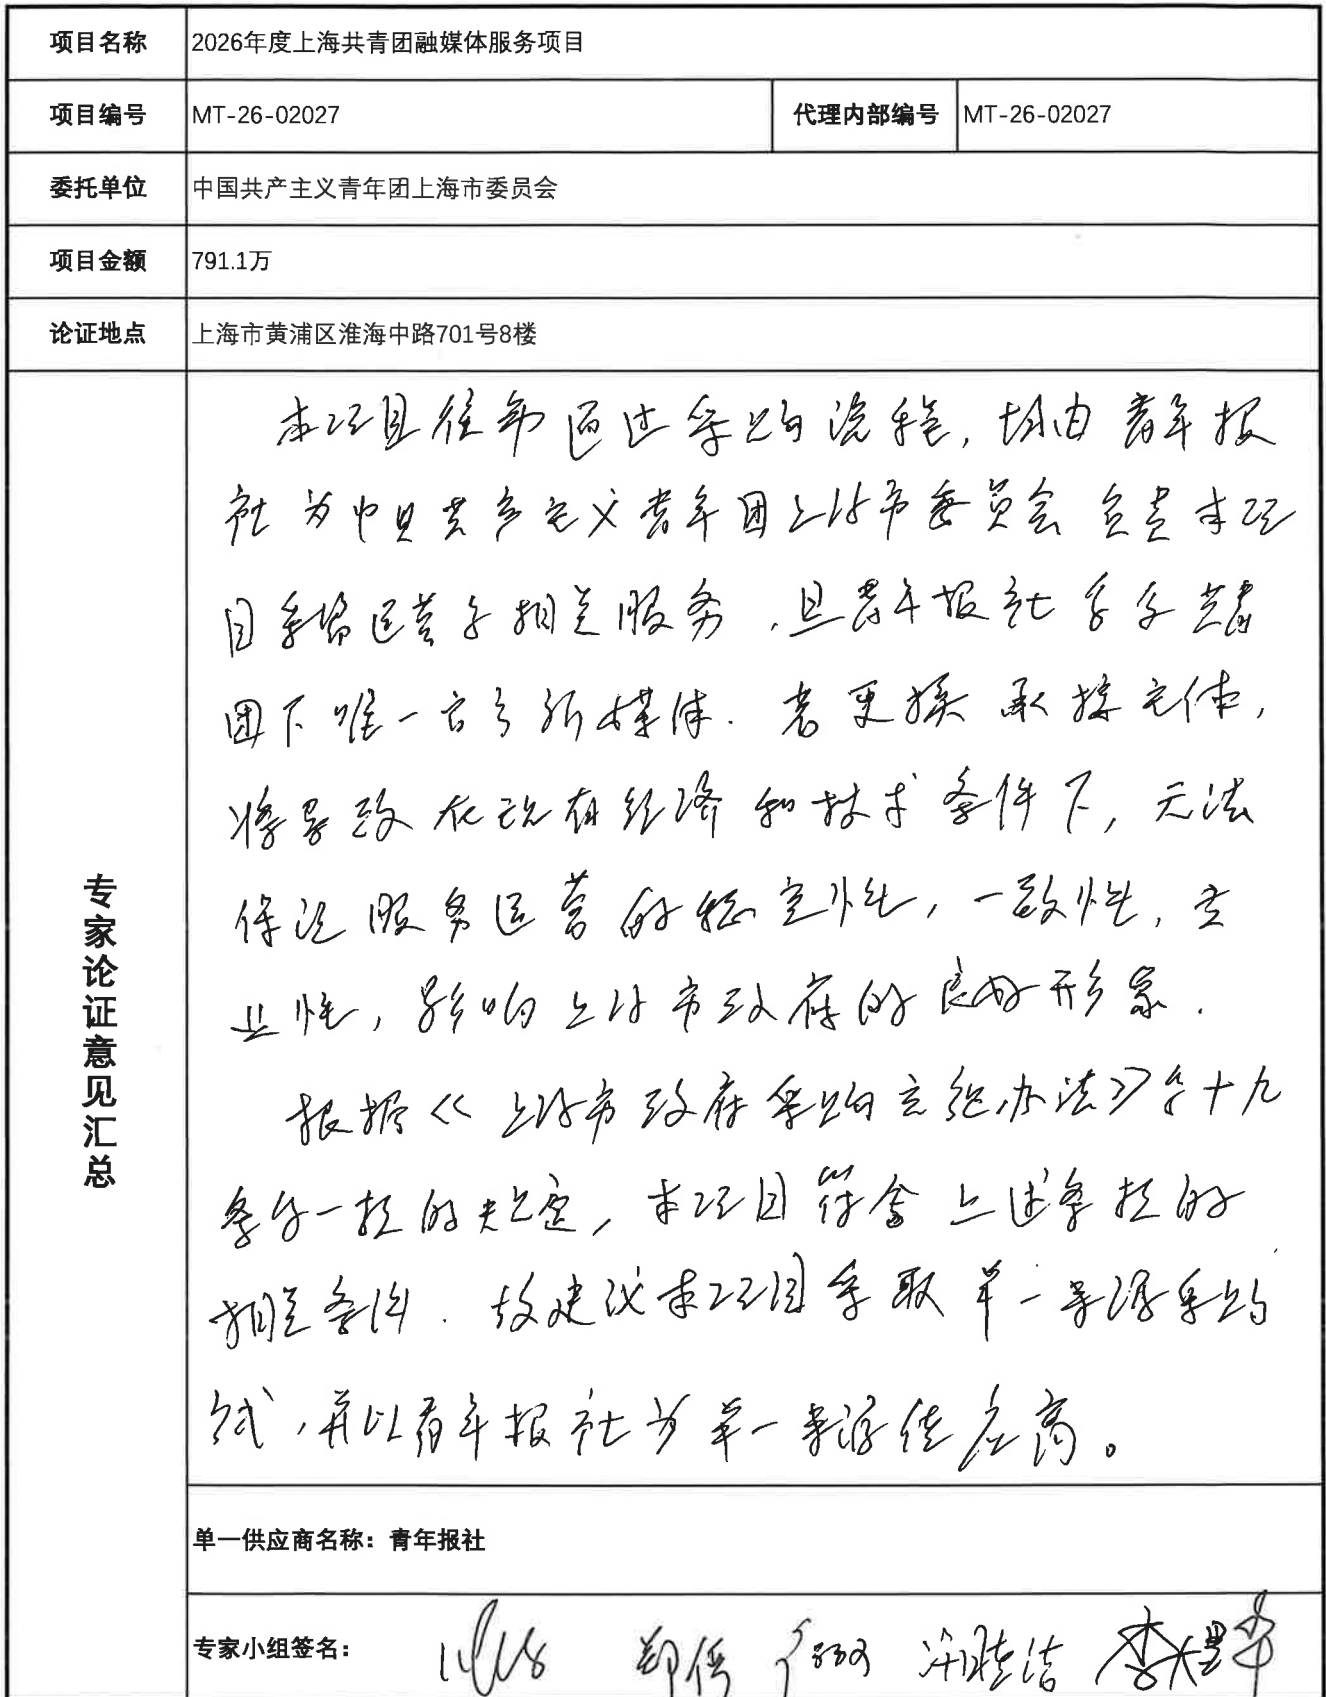 项目名称 2026年度上海共青团融媒体服务项目
项目编号 MT-26-02027 代理内部编号 MT-26-02027
委托单位 中国共产主义青年团上海市委员会
项目金额 791.1万
论证地点 上海市黄浦区淮海中路701号8楼
专家论证意见汇总
本项目往年通过采购流程,均由青年报
社为中国共产主义青年团上海市委员会负责本项
目采编运营等相关服务,且青年报社系共青
团下唯一官方新媒体.若更换承接主体,
将导致在现有经济和技术条件下,无法
保证服务运营的稳定性,一致性,专
业性,影响上海市政府的良好形象.
根据《上海市政府采购实施办法》第十九
条第一款的规定,本项目符合上述条款的
相关条件.故建议本项目采取单一来源采购
方式,并以青年报社为单一来源供应商。
单一供应商名称:青年报社
专家小组签名: